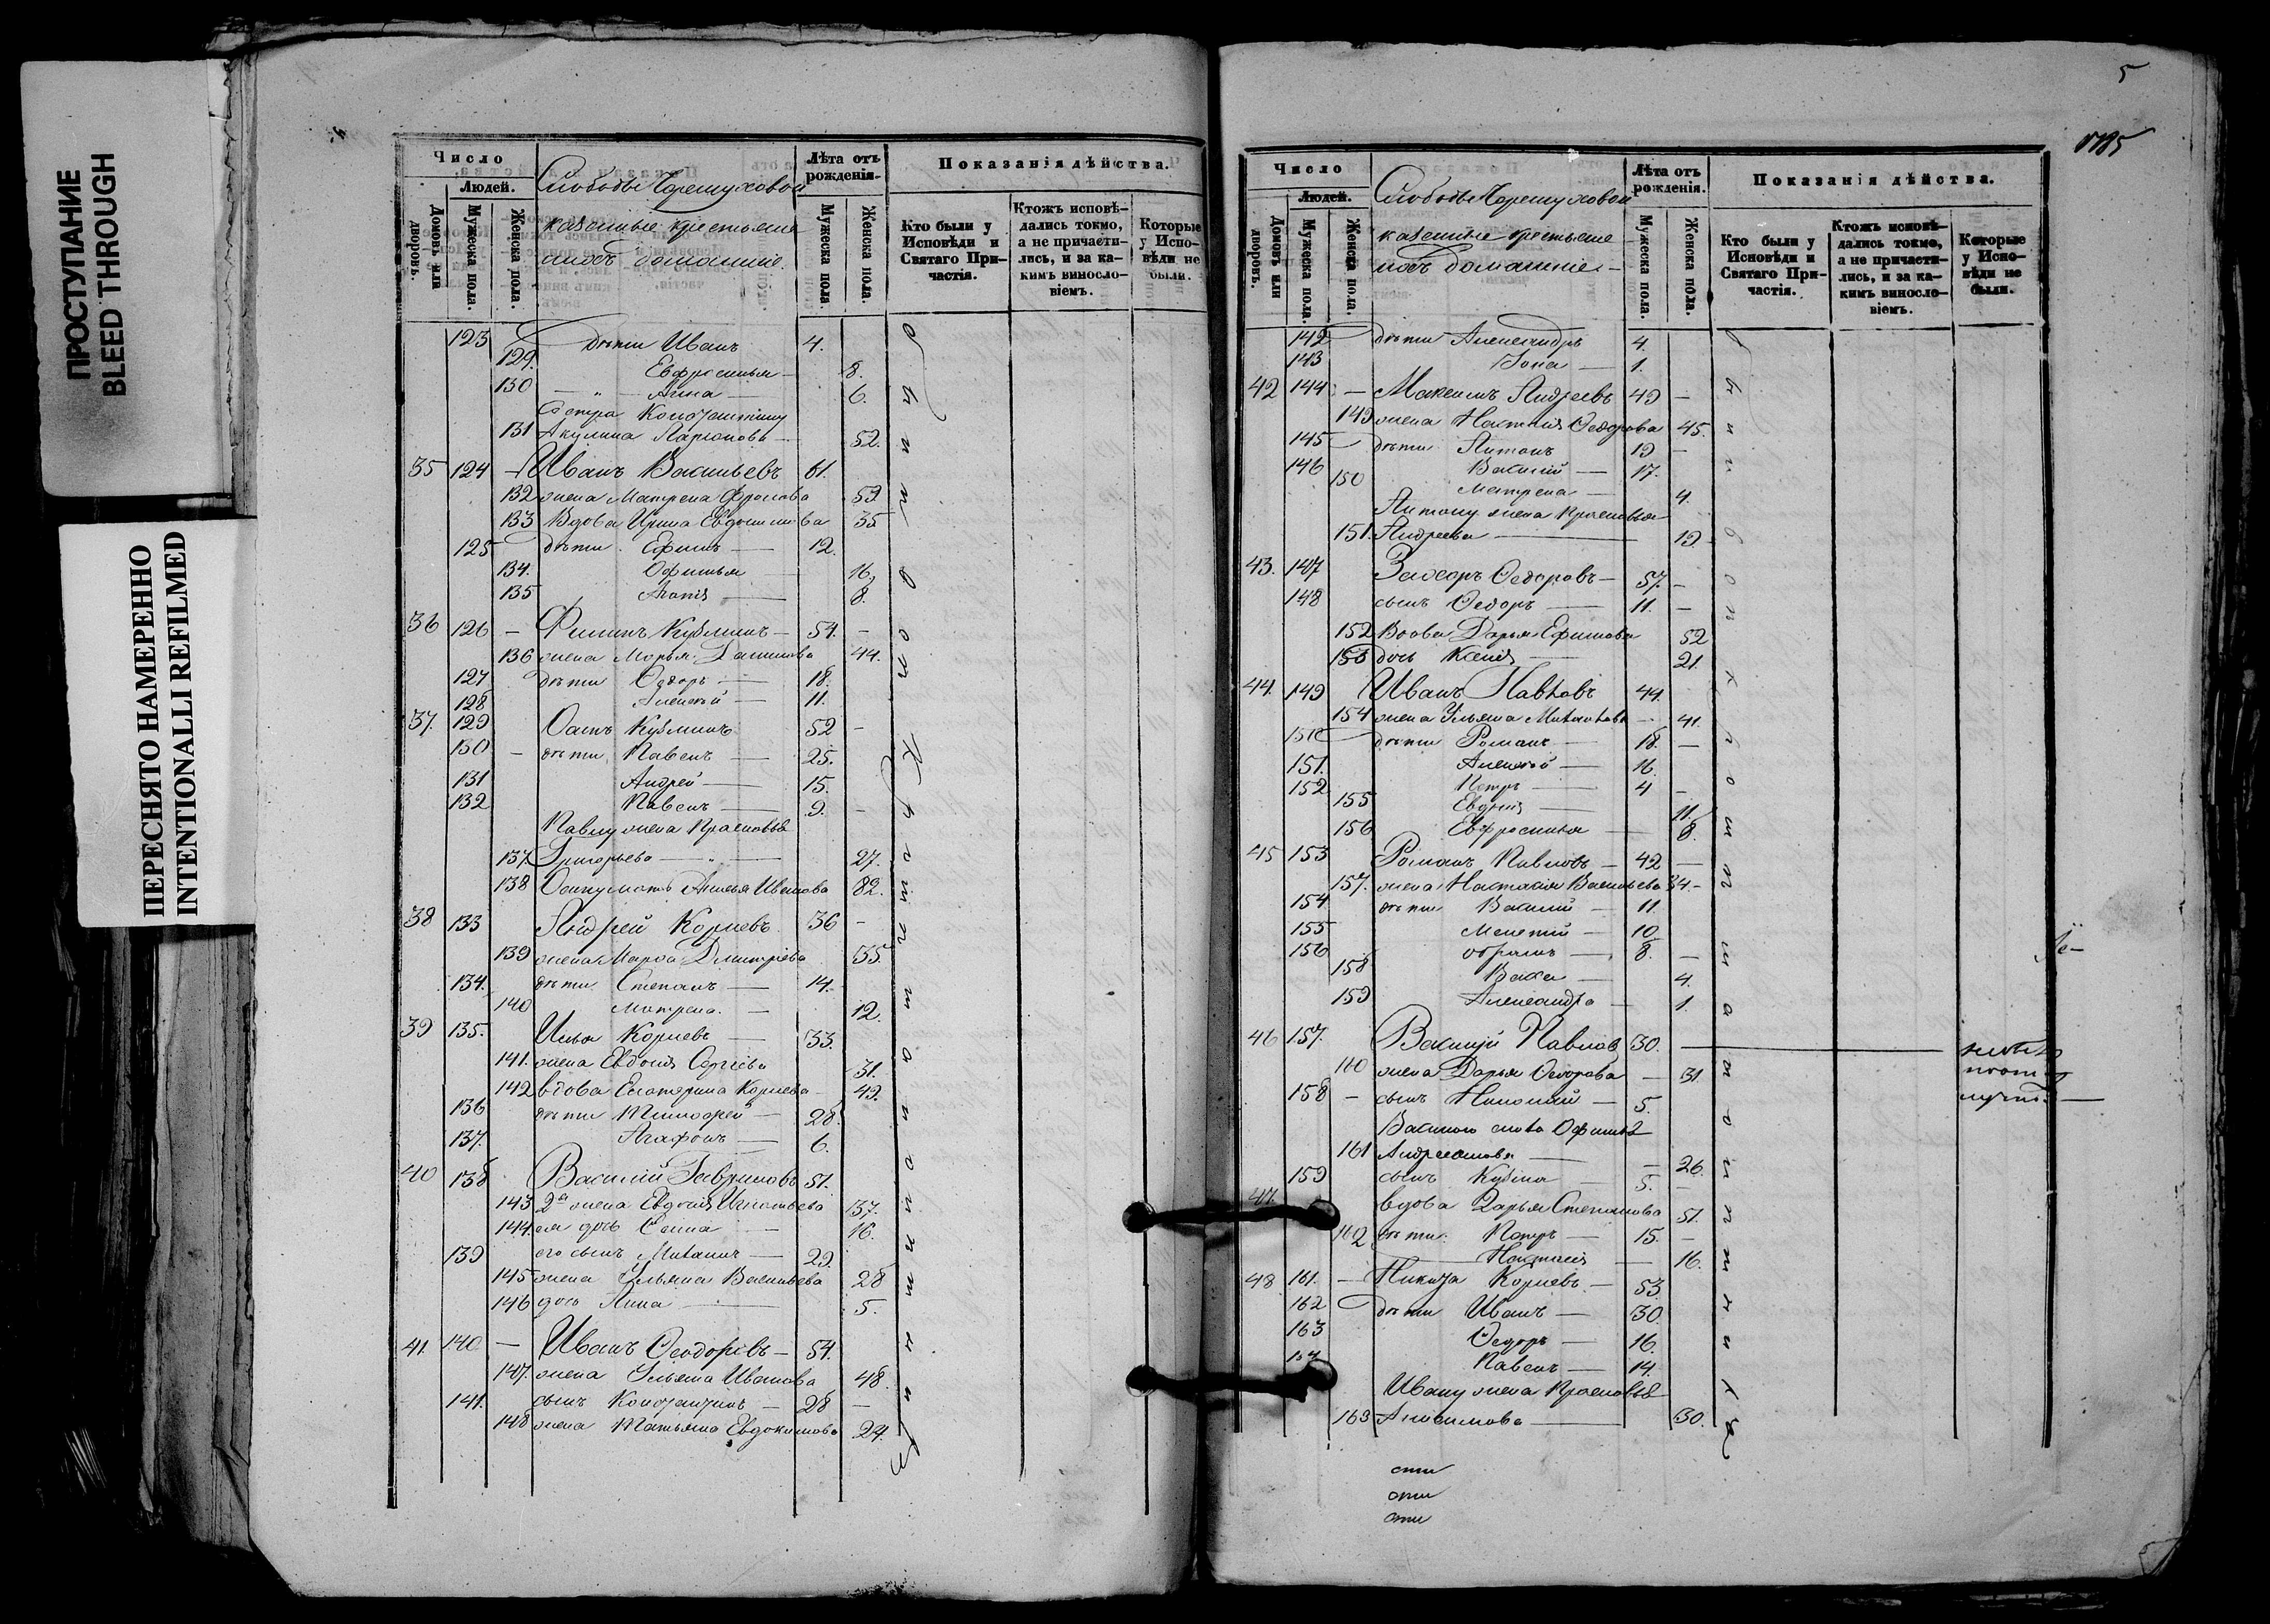 ПРОСТУПАНИЕ
BLEED THROUGH
ПЕРЕСНЯТО НАМЕРЕННО
INTENTIONALLI REFILMED
Число
Людей.
Домовъ или дворовъ.
Мужеска пола.
Женска пола.
Слободы Черемуховой
казенные крестьяне
ихъ домашніе.
Лѣта отъ рожденія.
Мужеска пола.
Женска пола.
Показанія дѣйства.
Кто были у Исповѣди и Святаго Причастія.
Ктожъ исповѣдались токмо, а не причастились, и за какимъ винословіемъ.
Которые у Исповѣди не были.
123 дѣти Иванъ 4.
129. Евфросинья 8.
130 Анна 6.
Сестра Константину
131 Акулина Ларіонова 52.
35 124 Иванъ Васильевъ 61.
132 жена Матрена Фролова 59.
133 Вдова Ирина Евдокимова 35
125 дѣти Ефимъ 12.
134. Офимья 16,
135 8.
36 126 Филипъ Кузминъ 54.
136 жена Марья Данилова 44.
127 дѣти Ѳедоръ 18.
128 Алексѣй 11.
37. 129 Осипъ Кузминъ 52
130 дѣти Павелъ 25.
131 Андрей 15.
132 Павелъ 9.
Павлу жена Прасковья
137 Григорьева 27.
138 Осипу мать Анисья Иванова 82.
38 133 Андрей Корневъ 36
139 жена Марѳа Дмитріева 35.
134. дѣти Степанъ 14.
140 Матрена 12.
39 135. Илья Корневъ 33.
141. жена Евдокія Сергіева 31.
142 вдова Екатерина Корнева 49.
136 дѣти Тимофей 28.
137. Агафонъ 6.
40 138 Василій Гавриловъ 51.
143 2я жена Евдокія Игнатьева 37.
144. ея дочь 16.
139 его сынъ Михаилъ 29.
145 жена Ульяна Васильева 28
146 дочь Анна 5.
41. 140 Иванъ Ѳеодоровъ 54.
147. жена Ульяна Иванова 48.
141. сынъ Константинъ 28
148 жена Татьяна Евдокимова 24.
5
Число
Людей.
Домовъ или дворовъ.
Мужеска пола.
Женска пола.
Слободы Черемуховой
казенные крестьяне
ихъ домашніе
Лѣта отъ рожденія.
Мужеска пола.
Женска пола.
Показанія дѣйства.
Кто были у Исповѣди и Святаго Причастія.
Ктожъ исповѣдались токмо, а не причастились, и за какимъ винословіемъ.
Которые у Исповѣди не были.
142 дѣти Александръ 4.
143 1.
42 144 Максимъ Андреевъ 49
149 жена Настасія Ѳедорова 45.
145 дѣти Антонъ 19
146 Василій 17.
150 Матрена 4.
Антону жена Прасковья
151. Андреева 19.
43. 147 Захаръ Ѳедоровъ 57.
148 сынъ Ѳедоръ 11.
152 Вдова Дарья Ефимова 52
153 дочь Ксенія 21.
44. 149 Иванъ Павловъ 44.
154 жена Ульяна Михайлова 41.
150 дѣти Романъ 18.
151. Алексѣй 16.
152 Петръ 4
155 Евдокія 11.
156 Евфросинья 8.
45 153 Романъ Павловъ 42
157. жена Настасія Васильева 34.
154 дѣти Василій 11.
155 Мелетій 10
156 8.
158 4.
159 Александра 1.
46 157. Василій Павловъ 30.
160 жена Дарья Ѳедорова 31.
158 сынъ Николай 5.
161 26.
159 сынъ Кузма 5.
47. вдова Дарья Степанова 51.
162 дѣти Петръ 15.
Настасія 16.
48 161. Никита Корневъ 53
162 дѣти Иванъ 30.
163 Ѳедоръ 16.
164 Павелъ 14.
Ивану жена Прасковья
163 Анисимова 30.